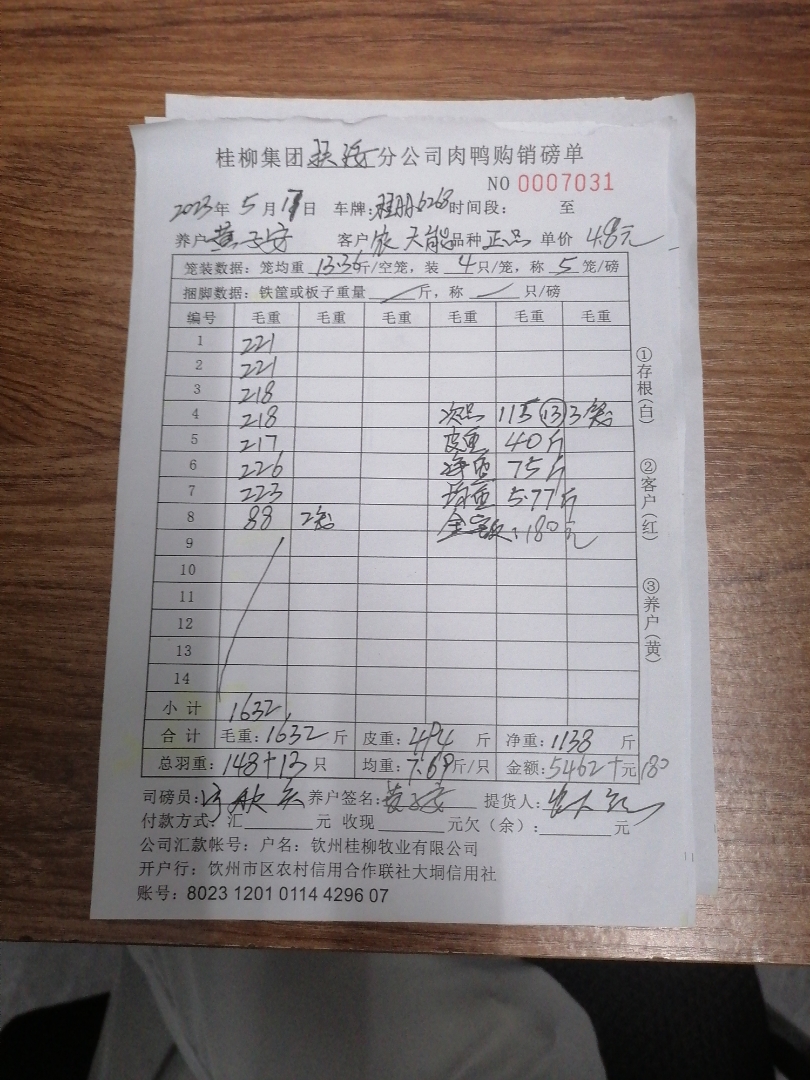 桂柳集团 分公司肉鸭购销磅单
NO 0007031
2023年 5月 17日 车牌: 6268 时间段: 至
养户 黄子安 客户 农天能 品种 正品 单价 4.8元
笼装数据: 笼均重 13.36斤/空笼, 装 4只/笼, 称 5笼/磅
捆脚数据: 铁筐或板子重量 斤, 称 只/磅
编号 毛重 毛重 毛重 毛重 毛重 毛重
1 221
2 221
3 218
4 218 次品 115 13 3笼
5 217 皮重 40斤
6 226 净重 75斤
7 223 均重 5.77斤
8 88 2笼 金额: 180元
9
10
11
12
13
14
小计 1632
合计 毛重: 1632 斤 皮重: 494 斤 净重: 1138 斤
总羽重: 148+13 只 均重: 7.69斤/只 金额: 5462+元180
司磅员: 养户签名: 黄子安 提货人:
付款方式: 汇 元 收现 元欠(余): 元
公司汇款帐号: 户名: 钦州桂柳牧业有限公司
开户行: 钦州市区农村信用合作联社大垌信用社
账号: 8023 1201 0114 4296 07
①存根(白)
②客户(红)
③养户(黄)